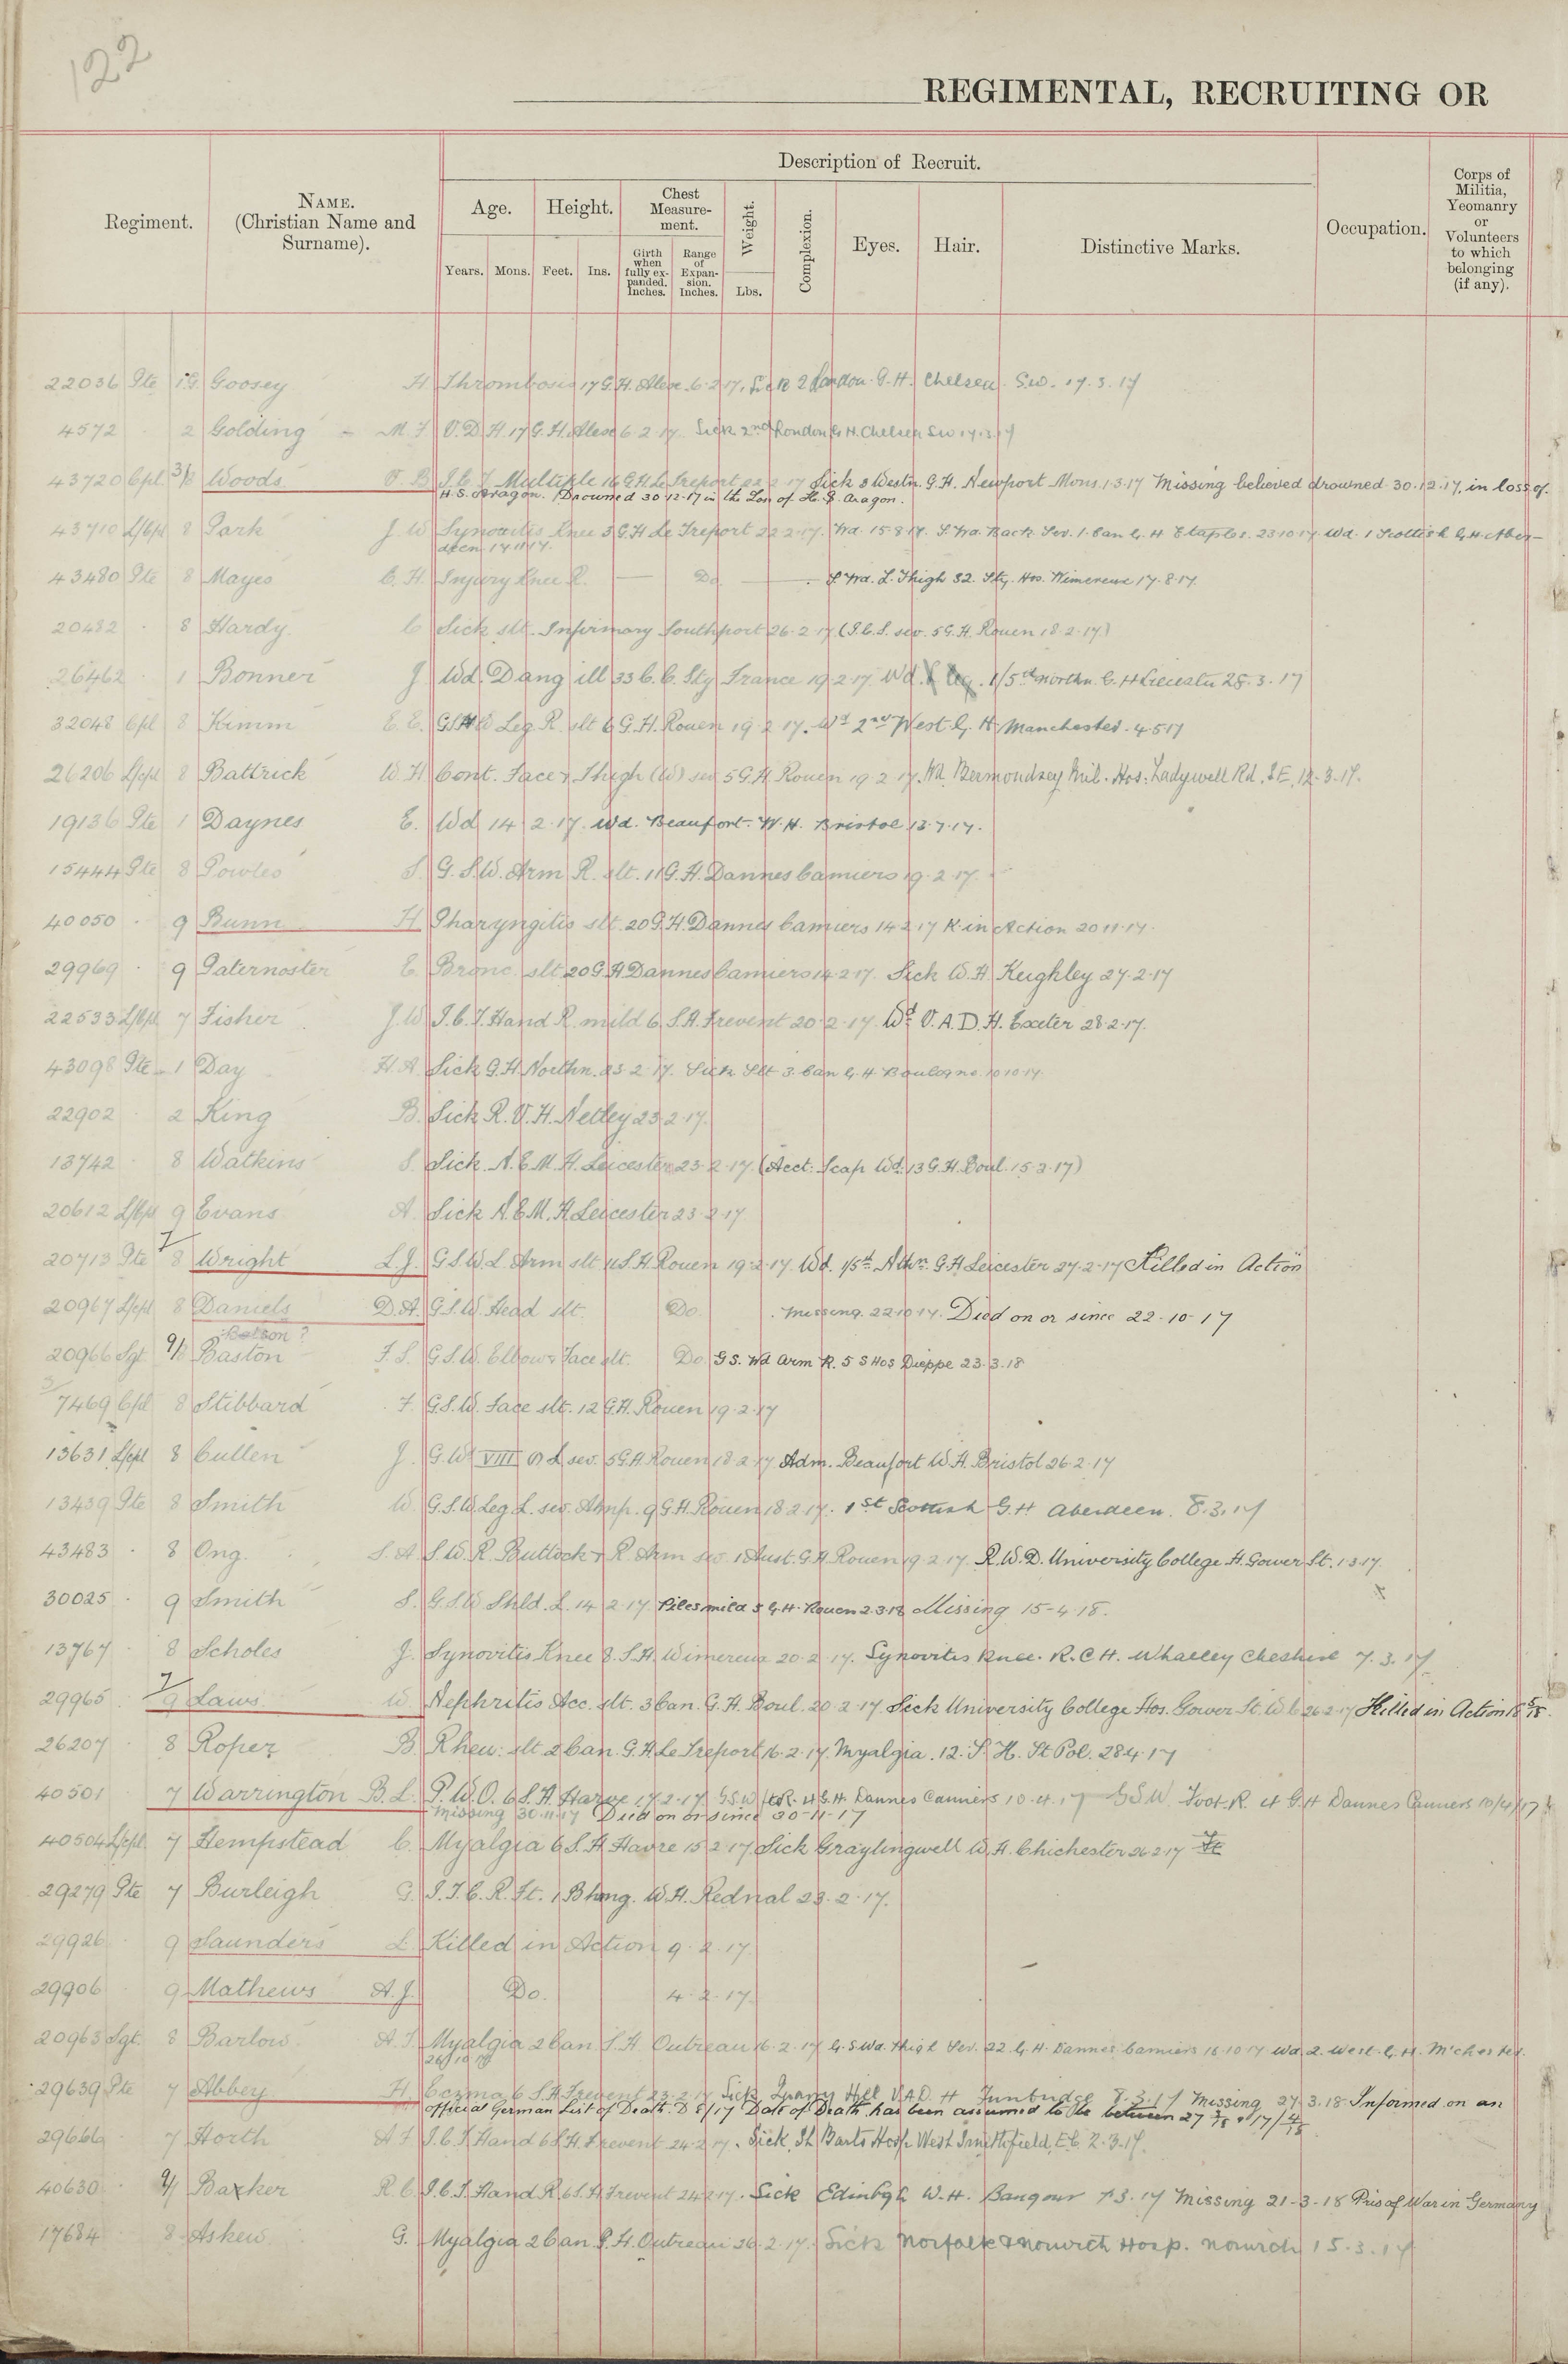 122
REGIMENTAL, RECRUITING OR
Regiment.
NAME.
(Christian Name and
Surname).
Description of Recruit.
Age.
Height.
Chest
Measure-
ment.
Weight.
Complexion.
Eyes.
Hair.
Distinctive Marks.
Occupation.
Corps of
Militia,
Yeomanry
or
Volunteers
to which
belonging
(if any).
Years.
Mons.
Feet.
Ins.
Girth
when
fully ex-
panded.
Inches.
Range
of
Expan-
sion.
Inches.
Lbs.
22036 Pte Goosey H Thrombosis 17 G.H. Alex. 6.2.17. Sick 2 London. G.H. Chelsea S.W. 17.3.17
4572 2 Golding - M.J V.D.H 17 G.H. Alex 6.2.17 Sick 2nd London G.H. Chelsea SW 17.3.17
43720 Cpl 3/8 Woods V.B I.C.T. Multiple 16 G.H. Le Treport 22.2.17 Sick 3 Westn. G.H. Newport Mons. 1.3.17 Missing believed drowned 30.12.17, in loss of
H.S. Aragon. Drowned 30-12-17 in the Loss of H.S. Aragon.
43710 L/Cpl 8 Park J.W Synovitis Knee 3 G.H Le Treport 22.2.17. Wd. 15.8.17. S. Wd. Back Sev. 1. Can G.H Etaples. 23.10.17. Wd. 1 Scottish G.H. Aber-
deen 17.11.17.
43480 Pte 8 Mayes C.H. Injury Knee R. — Do — S. Wd. L. Thigh 32. Sty. Hos. Wimereux 17.8.17.
20482 · 8 Hardy. C Sick slt. Infirmary Southport 26.2.17 (I.C.S. sev. 5 G.H. Rouen 18.2.17)
26462 · 1 Bonner J Wd. Dang ill 33 C.C. Stg France 19.2.17. Wd. Leg. 1/5th Northn. G.H Leicester 28.3.17
32048 Cpl 8 Kimm E.E. G.S.W. Leg R. slt 6 G.H. Rouen 19.2.17. Wd 2nd West. G.H. Manchester. 4.5.17
26206 L/Cpl 8 Battrick W.H Cont. Face & Thigh (W) sev 5 G.H Rouen 19 2 17. Wd. Bermondsey Mil. Hos. Ladywell Rd. S.E. 12.3.17.
19136 Pte 1 Daynes E. Wd 14.2.17. Wd. Beaufort. W.H. Bristol 13.7.17.
15444 Pte 8 Powles S. G.S.W. Arm R. slt. 11 G.H. Dannes Camiers 19.2.17.
40050 · 9 Bunn H Pharyngitis slt. 20 G.H. Dannes Camiers 14.2.17 K in Action 20.11.17.
29969 · 9 Paternoster E. Bronc. slt. 20 G.H Dannes Camiers 14.2.17. Sick W.H. Keighley 27.2.17
22533 L/Cpl 7 Fisher J.W I.C.T. Hand R. mild 6 S.H. Frevent 20.2.17. Wd. V.A.D.H. Exeter 28.2.17.
43098 Pte 1 Day H.A Sick G.H. Northn. 23.2.17. Sick Slt 3. Can G.H Boulogne. 10.10.17.
22902 · 2 King B. Sick R.V.H. Netley 23.2.17.
13742 · 8 Watkins S. Sick N.E.M.H. Leicester 23.2.17 (Acct: Scap Wd. 13 G.H. Boul. 15.2.17)
20612 L/Cpl 9 Evans A. Sick N.E.M.H Leicester 23.2.17
20713 Pte 7 8 Wright L.J. G.S.W. L. Arm slt 11 S.H. Rouen 19.2.17. Wd. 1/5th Nthn. G.H Leicester 27.2.17 Killed in Action
20967 L/Cpl 8 Daniels D.A. G.S.W. Head slt. Do. Missing. 22.10.17. Died on or since 22-10-17
Batson?
20966 Sgt 9/8 Baston F.S. G.S.W. Elbow & Face slt. Do G S. Wd Arm R. 5 S Hos Dieppe 23.3.18
7469 Cpl 8 Stibbard F. G.S.W. Face slt. 12 G.H. Rouen 19.2.17
13631 L/Cpl 8 Cullen J. G.W VIII L sev. 5 G.H Rouen 18.2.17 Adm. Beaufort W.H. Bristol 26.2.17
13439 Pte 8 Smith W. G.S.W. Leg L. sev. Amp. 9 G.H. Rouen 18.2.17. 1st Scottish G.H Aberdeen. 8.3.17
43483 · 8 Ong. S.A S.W. R. Buttock & R. Arm sev. 1 Aust. G.H Rouen 19.2.17. R.W.D. University College H. Gower St. 1.3.17.
30025 · 9 Smith S. G.S.W Shld. L. 14 2 17 Piles mild 5 G.H. Rouen 2.3.18 Missing 15-4-18.
13767 · 8 Scholes J. Synovitis Knee 8. S.H. Wimereux 20.2.17. Synovitis Knee. R.C H. Whalley Cheshire 7.3.17
29965 7 9 Laws W. Nephritis Acc. slt. 3 Can. G.H. Boul. 20.2.17 Sick University College Hos. Gower St. W.C 26.2.17 Killed in Action
26207 · 8 Roper B Rheu: slt 2 Can. G.H Le Treport 16.2.17. Myalgia. 12. S.H. St Pol. 28.4.17
40501 7 Warrington B.L. P.U.O. 6 S.H Havre 17.2.17. G.S.W. foot R. 4 G.H. Dannes Camiers 10.4.17 G.S.W. Foot. R. 4 G.H Dannes Camiers 10/4/17
Missing 30.11.17 Died on or since 30-11-17
40504 L/Cpl. 7 Hempstead C. Myalgia 6 S.H Havre 15.2.17. Sick Graylingwell W.H. Chichester 26.2.17
29279 Pte 7 Burleigh G. I.T.C. R. Ft. 1 Bhmg. W.H. Rednal 23.2.17.
29926 9 Saunders L Killed in Action 9.2.17.
29906 · 9 Mathews A.J. Do. 4.2.17.
20963 Sgt. 8 Barlow A.T. Myalgia 2 Can. S.H. Outreau 16.2.17 G.S. Wd. Thigh Sev. 22. G.H. Dannes Camiers 15.10.17 Wd. 2. West. G.H. M'chester.
26/10/17
29639 Pte 7 Abbey H. Eczma 6 S.H Frevent 23.2.17 Sick Quarry Hill V.A.D. H Tunbridge 8.3.17 Missing 27.3.18. Informed on an
official German List of Death. Date of Death has been assumed to be between 27
29666 · 7 Horth A J I.C.T. Hand 6 S.H. Frevent 24.2.17. Sick. St Barts Hosp. West Smithfield, E.C. 2.3.17.
40630 · 9/ Barker R.C. I.C.T. Hand R. 6 S.H. Frevent 24.2.17. Sick Edinbgh W.H. Bangour 7.3.17 Missing 21-3-18 Pris of War in Germany
17684 8 Askew G. Myalgia 2 Can S.H. Outreau 26.2.17. Sick Norfolk & Norwich Hosp. Norwich 15.3.17